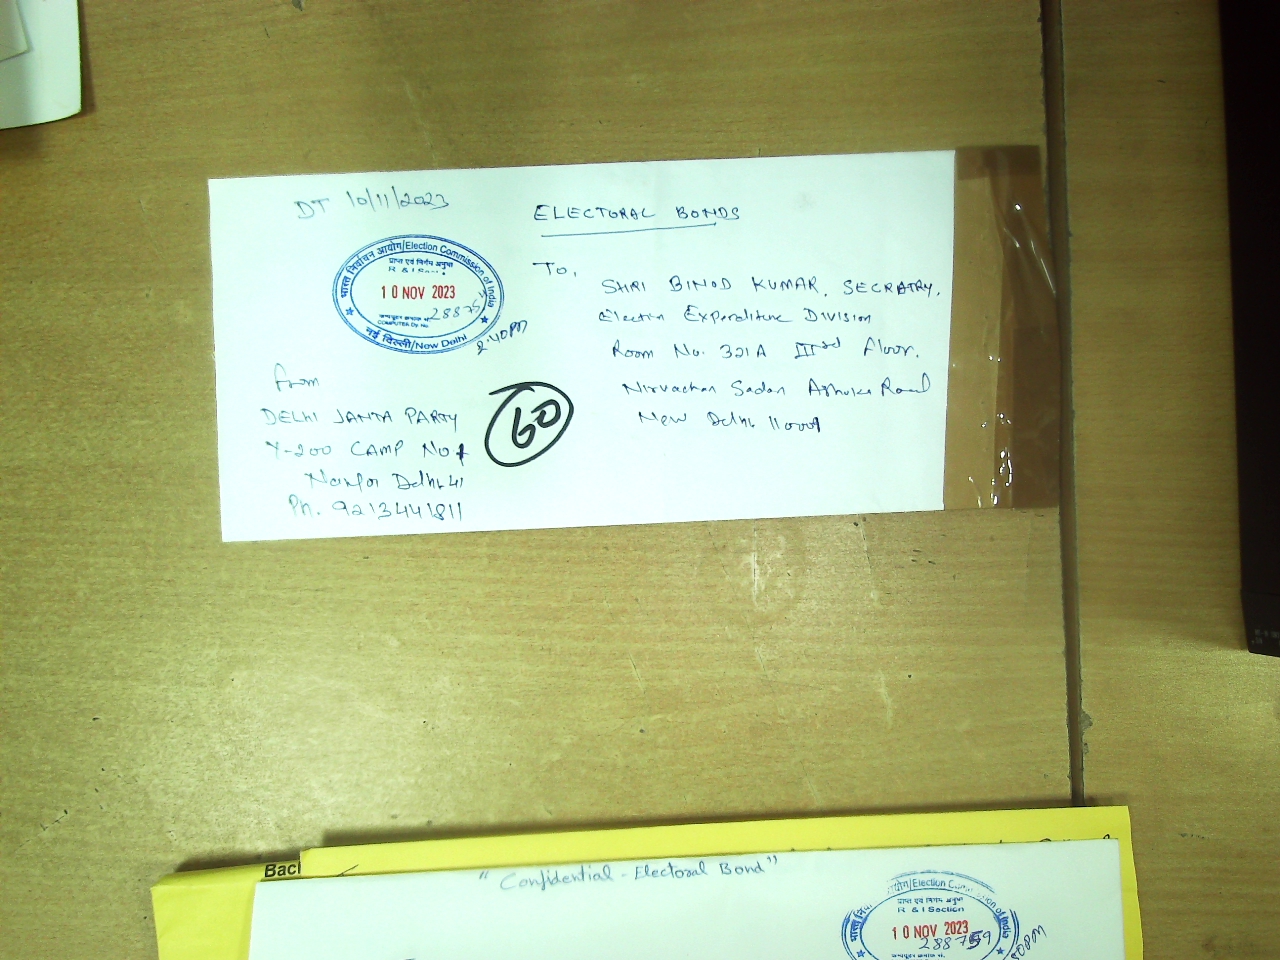 DT 10/11/2023
ELECTORAL BONDS
भारत निर्वाचन आयोग/Election Commission of India
प्राप्त एवं निर्गम अनुभाग
R & I
10 NOV 2023
COMPUTER Dy No
नई दिल्ली/New Delhi
2:40PM
To,
SHRI BINOD KUMAR, SECRATRY,
Election Expenditure Division
Room No. 321A IIIrd floor.
Nirvachan Sadan Ashoka Road
New Delhi 110001
From
DELHI JANTA PARTY
Y-200 CAMP No 1
Delhi 41
Ph. 9213441811
60
Back
"Confidential - Electoral Bond"
/Election of India
प्राप्त एवं निर्गम अनुभाग
R & I Section
10 NOV 2023
288759